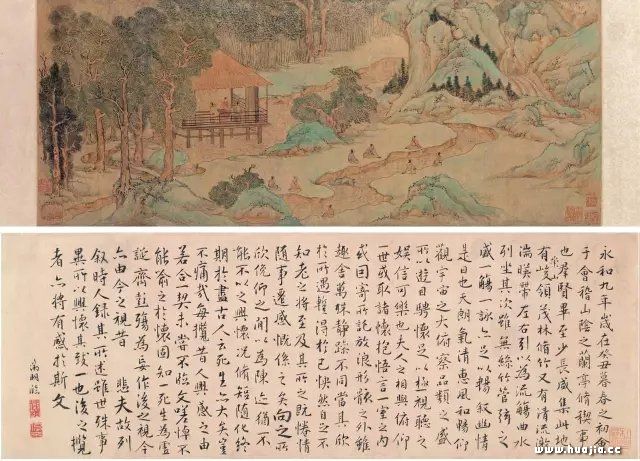 永和九年歲在癸丑暮春之初會
于會稽山陰之蘭亭脩稧事
也羣賢畢至少長咸集此地
有崇山峻領茂林脩竹又有清流激
湍暎帶左右引以為流觴曲水
列坐其次雖無絲竹管弦之
盛一觴一詠亦足以暢敘幽情
是日也天朗氣清惠風和暢仰
觀宇宙之大俯察品類之盛
所以遊目騁懷足以極視聽之
娛信可樂也夫人之相與俯仰
一世或取諸懷抱悟言一室之內
或因寄所託放浪形骸之外雖
趣舍萬殊靜躁不同當其欣
於所遇蹔得於己快然自足不
知老之將至及其所之既惓情
隨事遷感慨係之矣向之所
欣俛仰之閒以為陳迹猶不
能不以之興懷況脩短隨化終
期於盡古人云死生亦大矣豈
不痛哉每攬昔人興感之由
若合一契未嘗不臨文嗟悼不
能喻之於懷固知一死生為虛
誕齊彭殤為妄作後之視今
亦由今之視昔 悲夫故列
敘時人錄其所述雖世殊事
異所以興懷其致一也後之攬
者亦將有感於斯文
徵明臨
www.huajia.cc